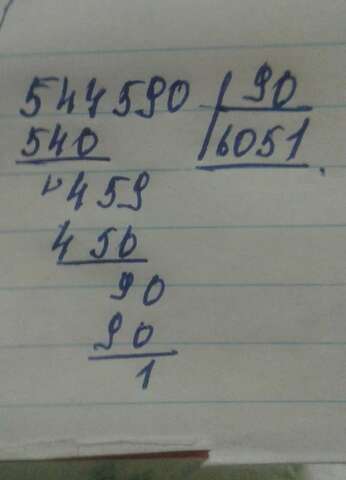 544590 90
540 6051
459
450
90
90
1